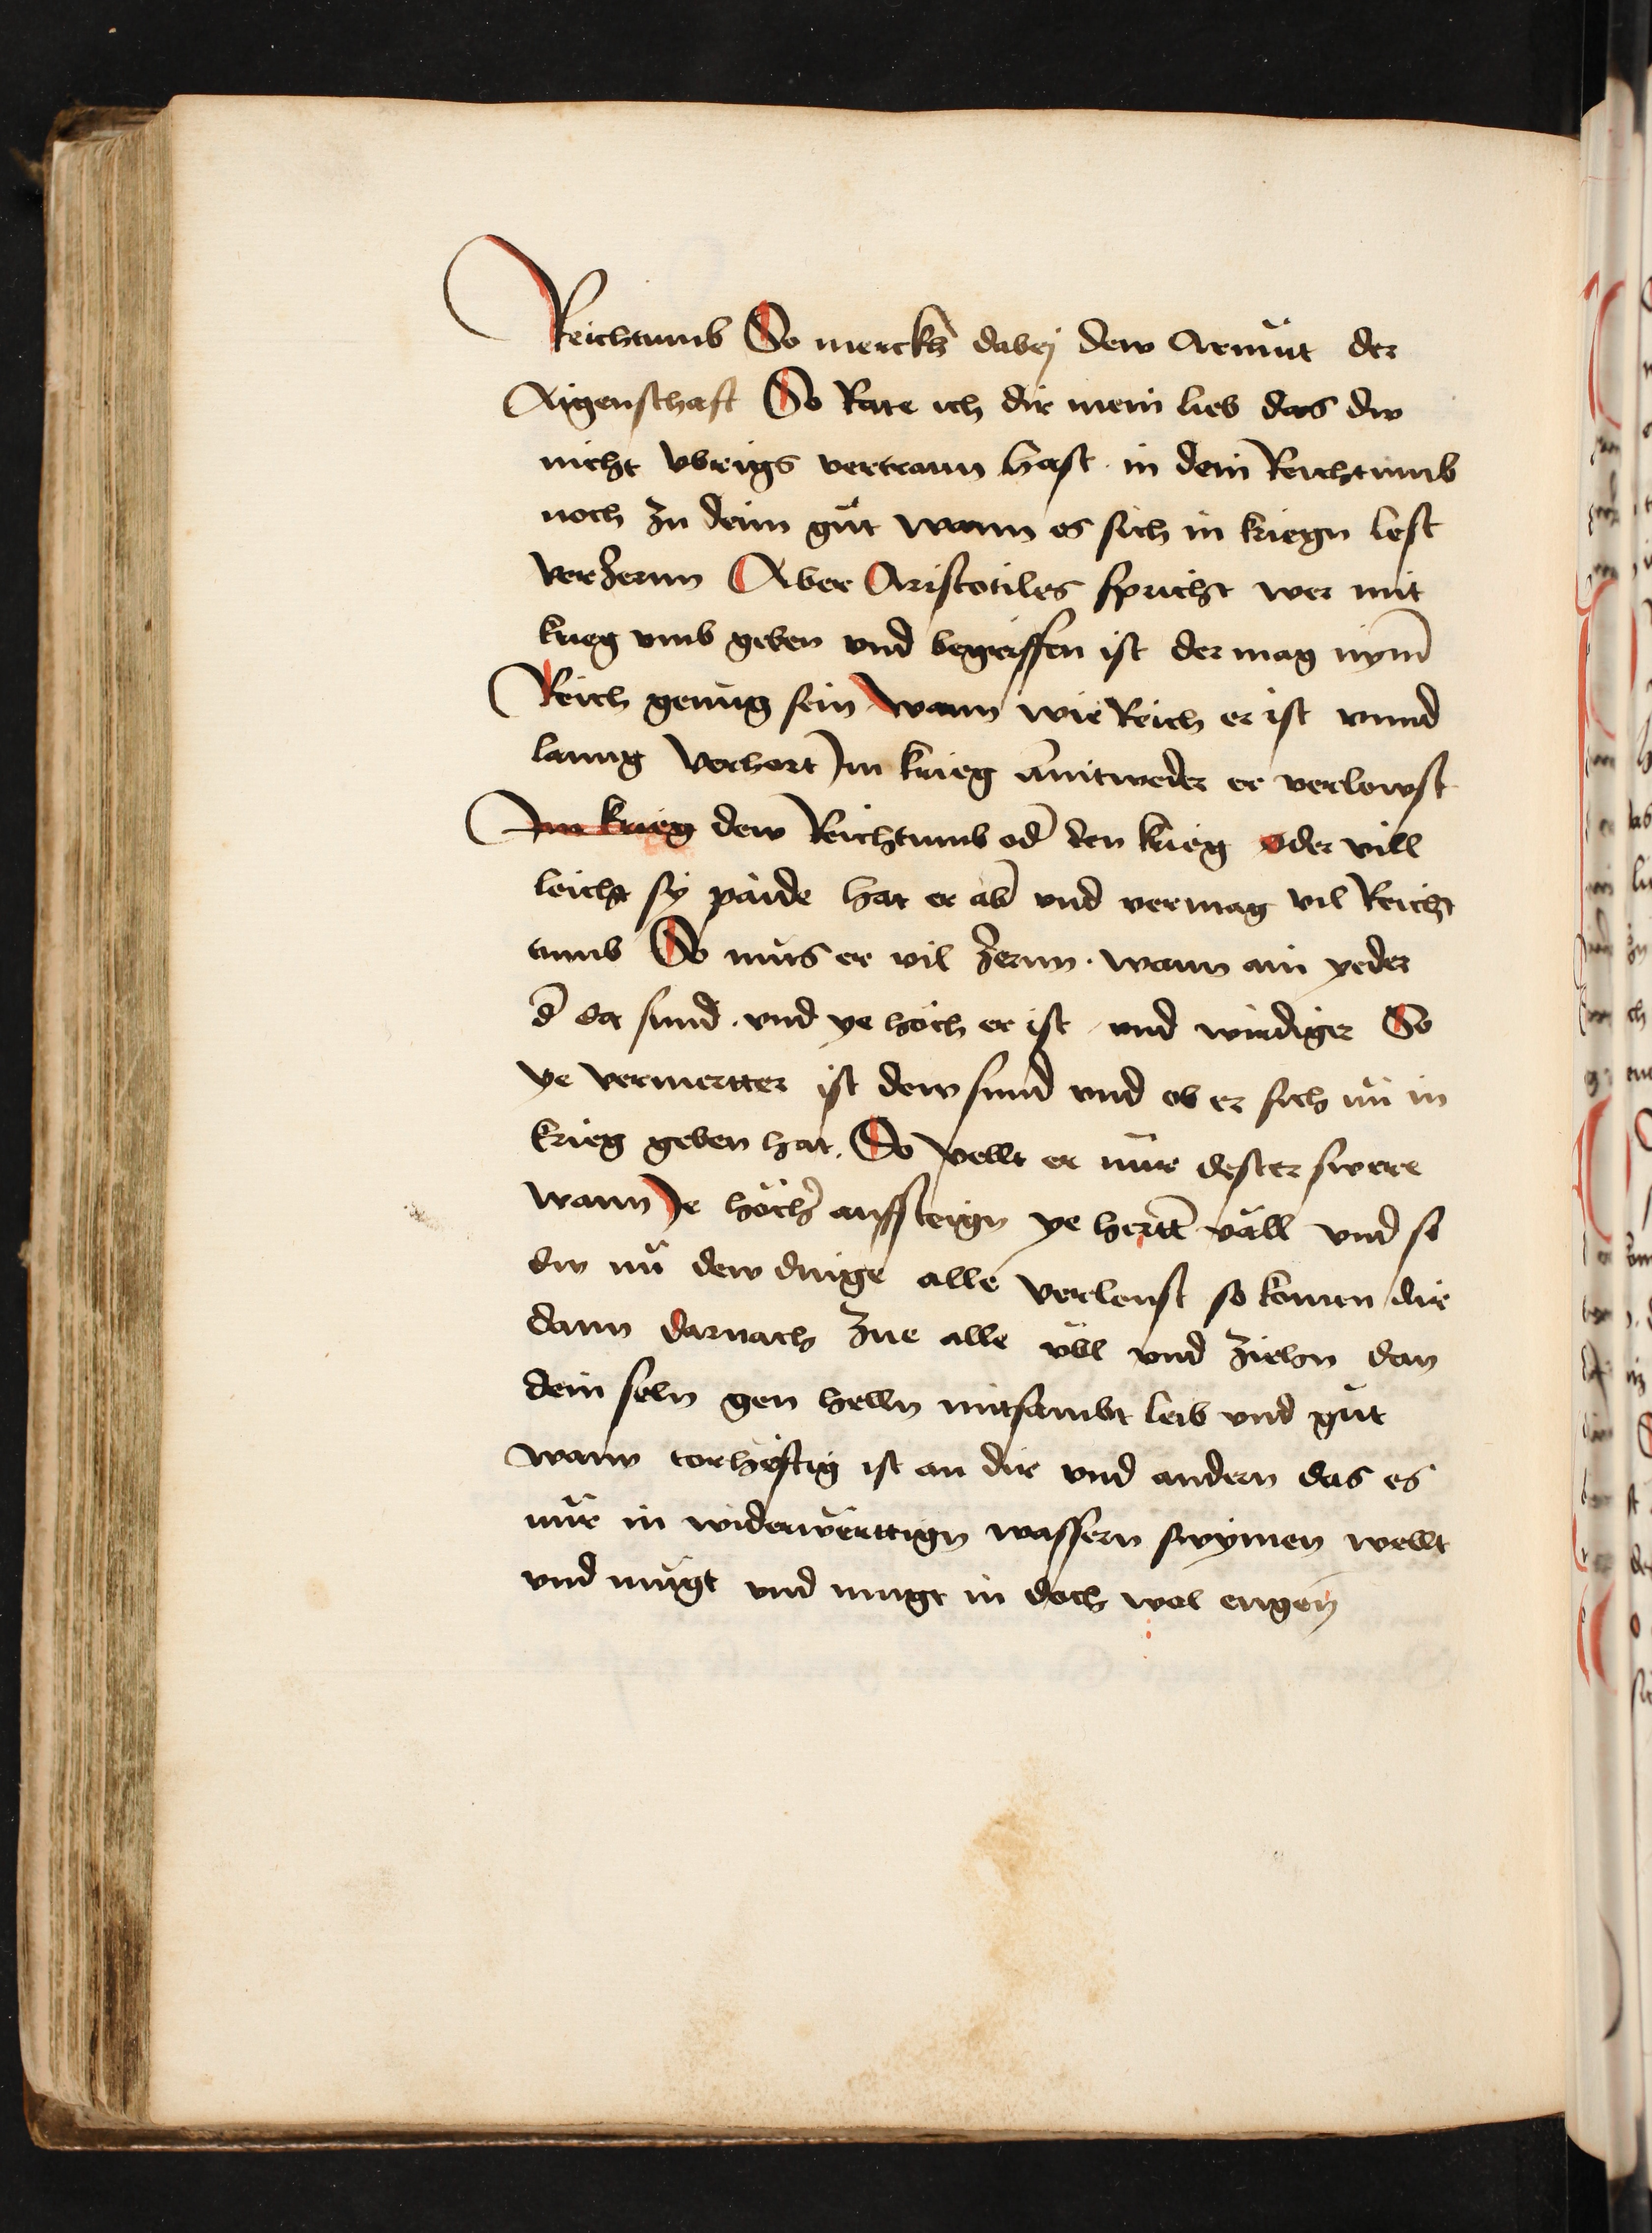 Reichtumb So merckh̄ dabej dew Armůt der
Aigenschaft So Rate ich dir mein lieb das dw
nicht vbrigs vertraun hast in dein Reichtumb
noch zu deim gůt wann es sich in kriegn lest
verzernn Aber Aristotiles spricht wer mit
krieg vmb geben vnd begriffen ist der mag nym̄
Reich genůg sein wann wie Reich er ist vnnd
lanng verhert Im krieg ānitweder er verlewst
Im krieg dew Reichtumb od̄ den krieg oder vill
leicht sÿ paide hat er ab̄ vnd vermag vil Reicht
tumb So můs er vil zernn wann ain yeder
d̄ da sund vnd ye höch er ist vnd wirdiger So
ye vermertter ist dew sund vnd ob er sich nů in
krieg geben hat So vellt er nůr dester swere
wann Je höch̄ auffsteign ye hertt̄ väll vnd so
dw nů dew dinge alle verleust so komen dir
dann darnach zue alle übl vnd ziehn dan
dein seln gen helln mitsambt leib vnd gůt
wann torhëftig ist an dir vnd andern das es
nůr in widerwërttign wassern swÿmen wellt
vnd můgt vnd mugt in doch wol engen